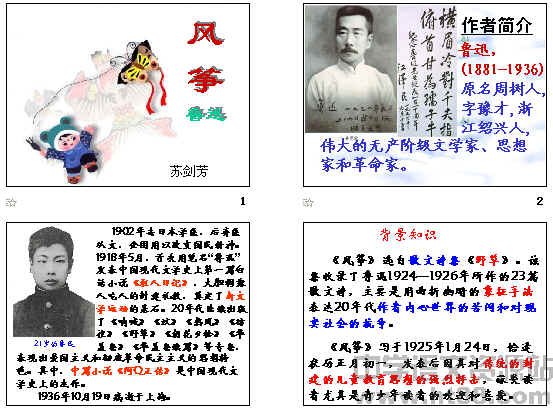 风筝
鲁迅
苏剑芳
1
作者简介
橫眉冷對千夫指
俯首甘為孺子牛
鲁迅,
(1881—1936)
原名周树人,
字豫才,浙
江绍兴人,
伟大的无产阶级文学家、思想
家和革命家。
2
1902年去日本学医,后弃医
从文,企图用以改变国民精神。
1918年5月,首次用笔名“鲁迅”
发表中国现代文学史上第一篇白
话小说《狂人日记》,大胆揭露
人吃人的封建礼教,奠定了新文
学运动的基石。20年代陆续出版
了《呐喊》《坟》《热风》《彷
徨》《野草》《朝花夕拾》《华
盖集》《华盖集续篇》等专集,
表现出爱国主义和彻底革命民主主义的思想特
色。其中,中篇小说《阿Q正传》是中国现代文
学史上的杰作。
1936年10月19日病逝于上海。
背景知识
《风筝》选自散文诗集《野草》。该
集收录了鲁迅1924—1926年所作的23篇
散文诗,主要是用曲折幽晦的象征手法
表达20年代作者内心世界的苦闷和对现
实社会的抗争。
《风筝》写于1925年1月24日,恰逢
农历正月初一,发表后因其对传统的封
建的儿童教育思想的强烈抨击,